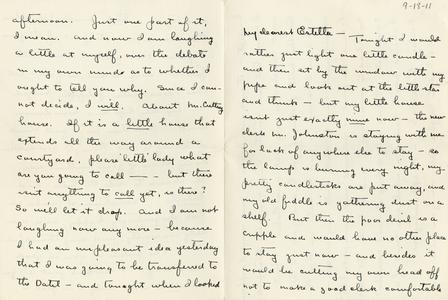 9-13-11
My dearest Estella - Tonight I would
rather just light one little candle -
and then sit by the window with my
pipe and look out at the little star
and think - but my little house
isn't just exactly mine now - the new
clerk Mr. Johnston is staying with me
for lack of anywhere else to stay - so
the lamp is burning every night, my
pretty candlesticks are put away, and
my old fiddle is gathering dust on a
shelf. But then the poor devil is a
cripple and would have no other place
to stay just now - and besides it
would be cutting my own head off
not to make a good clerk comfortable
afternoon. Just one part of it,
I mean. And now I am laughing
a little at myself, over the debate
in my own mind as to whether I
ought to tell you why. Since I can-
not decide, I will. About Mr. Cutting
house. If it is a little house that
extends all the way around a
courtyard, please little lady what
are you going to call - - but there
isn't anything to call yet, is there?
So we'll let it drop. And I am not
laughing now any more - because
I had an unpleasant idea yesterday
that I was going to be transferred to
the Datil - and tonight when I looked